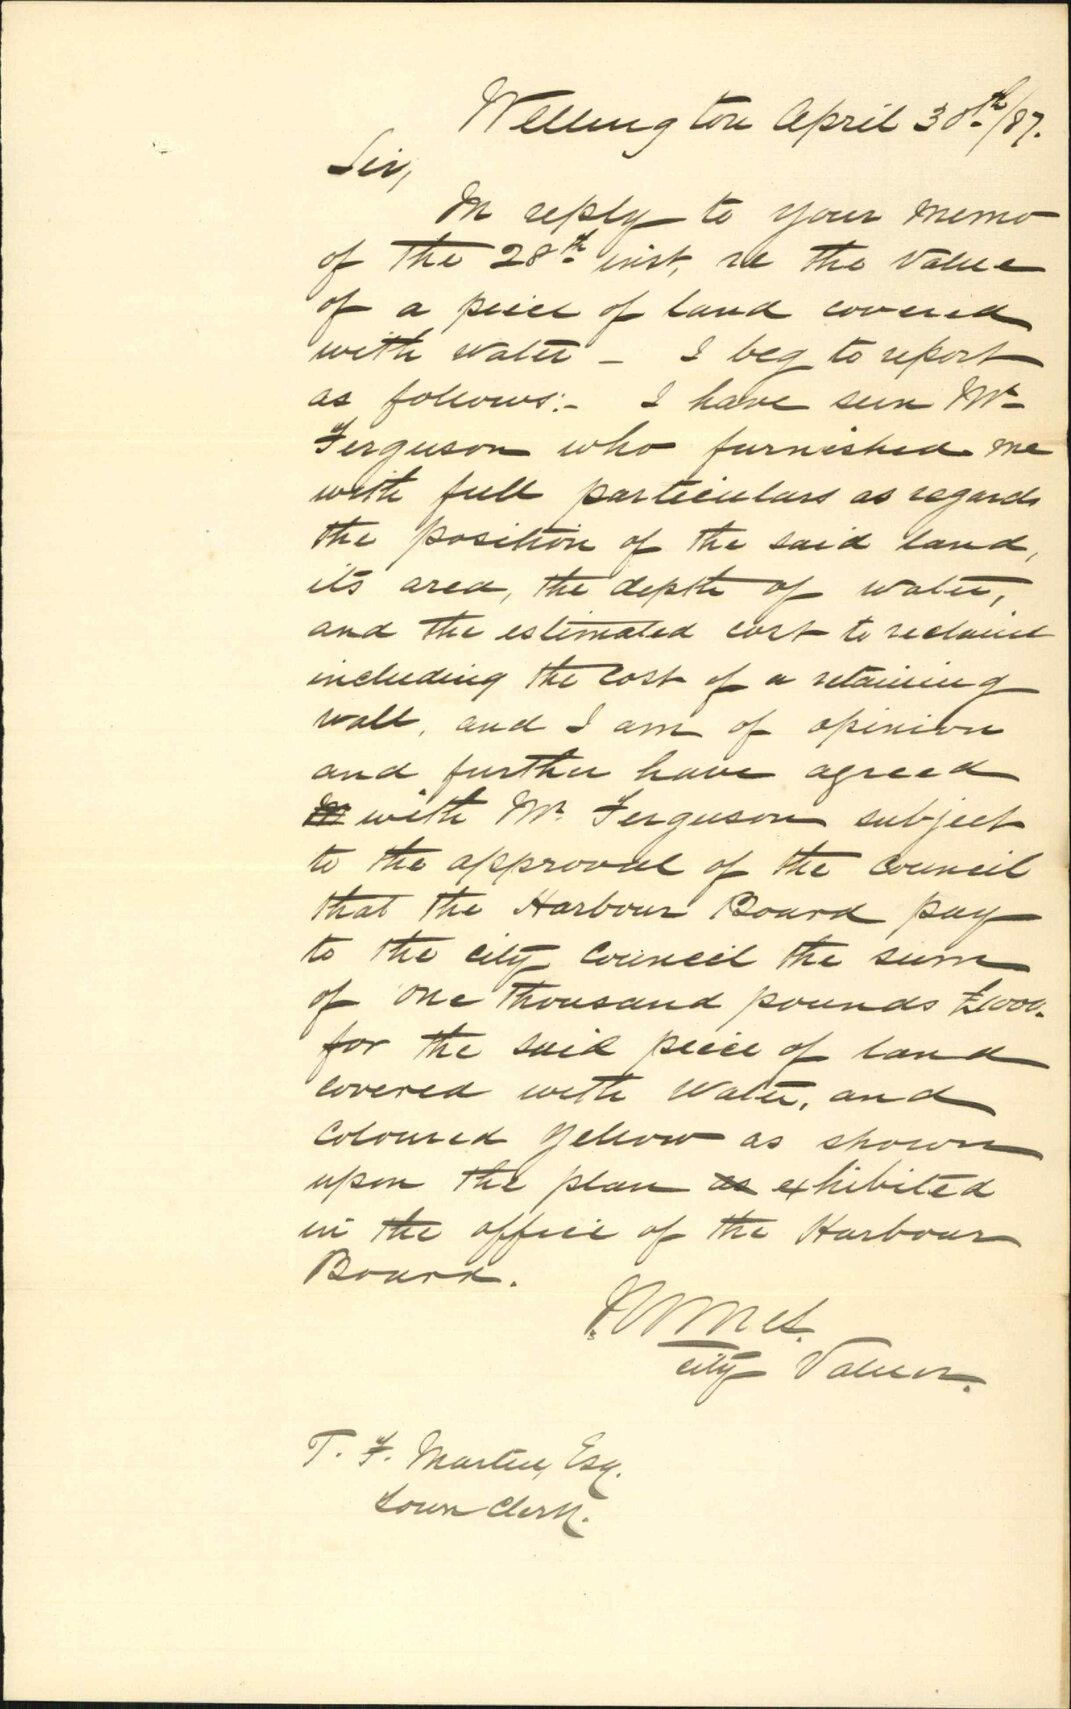 Wellington April 30th/87.
Sir,
In reply to your memo
of the 28th inst, re the value
of a piece of land covered
with water – I beg to report
as follows:- I have seen Mr
Ferguson who furnished me
with full particulars as regards
the position of the said land,
its area, the depth of water,
and the estimated cost to reclaim
including the cost of a retaining
wall, and I am of opinion
and further have agreed
with Mr Ferguson subject
to the approval of the Council
that the Harbour Board pay
to the city Council the sum
of one thousand pounds £1000.
for the said piece of land
covered with water, and
coloured yellow as shown
upon the plan as exhibited
in the office of the Harbour
Board.
City Valuer.
T. F. Martin, Esq.
Town Clerk.